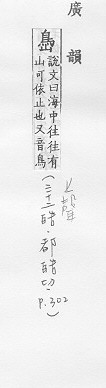 廣韻
㠀
說文曰海中往往有
山可依止也又音鳥
上聲
(三十二晧·都晧切 p.302)